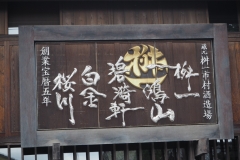 蔵元 桝一市村酒造場
桝一
鴻山
碧漪軒
白金
桜川
創業宝暦五年
桝一